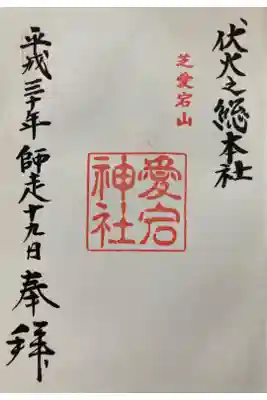 伏火之総本社
芝愛宕山
愛宕神社
平成三十年師走十九日
奉拝